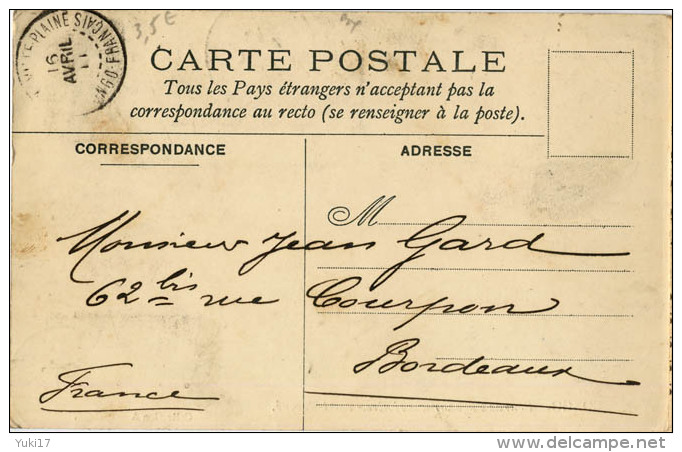 3,5€
PLAINE
16
AVRIL
11
CONGO-FRANÇAIS
CARTE POSTALE
Tous les Pays étrangers n'acceptant pas la
correspondance au recto (se renseigner à la poste).
CORRESPONDANCE
ADRESSE
M
Monsieur Jean Gard
62 bis rue Courpon
Bordeaux
France
Yuki17
delcampe.net